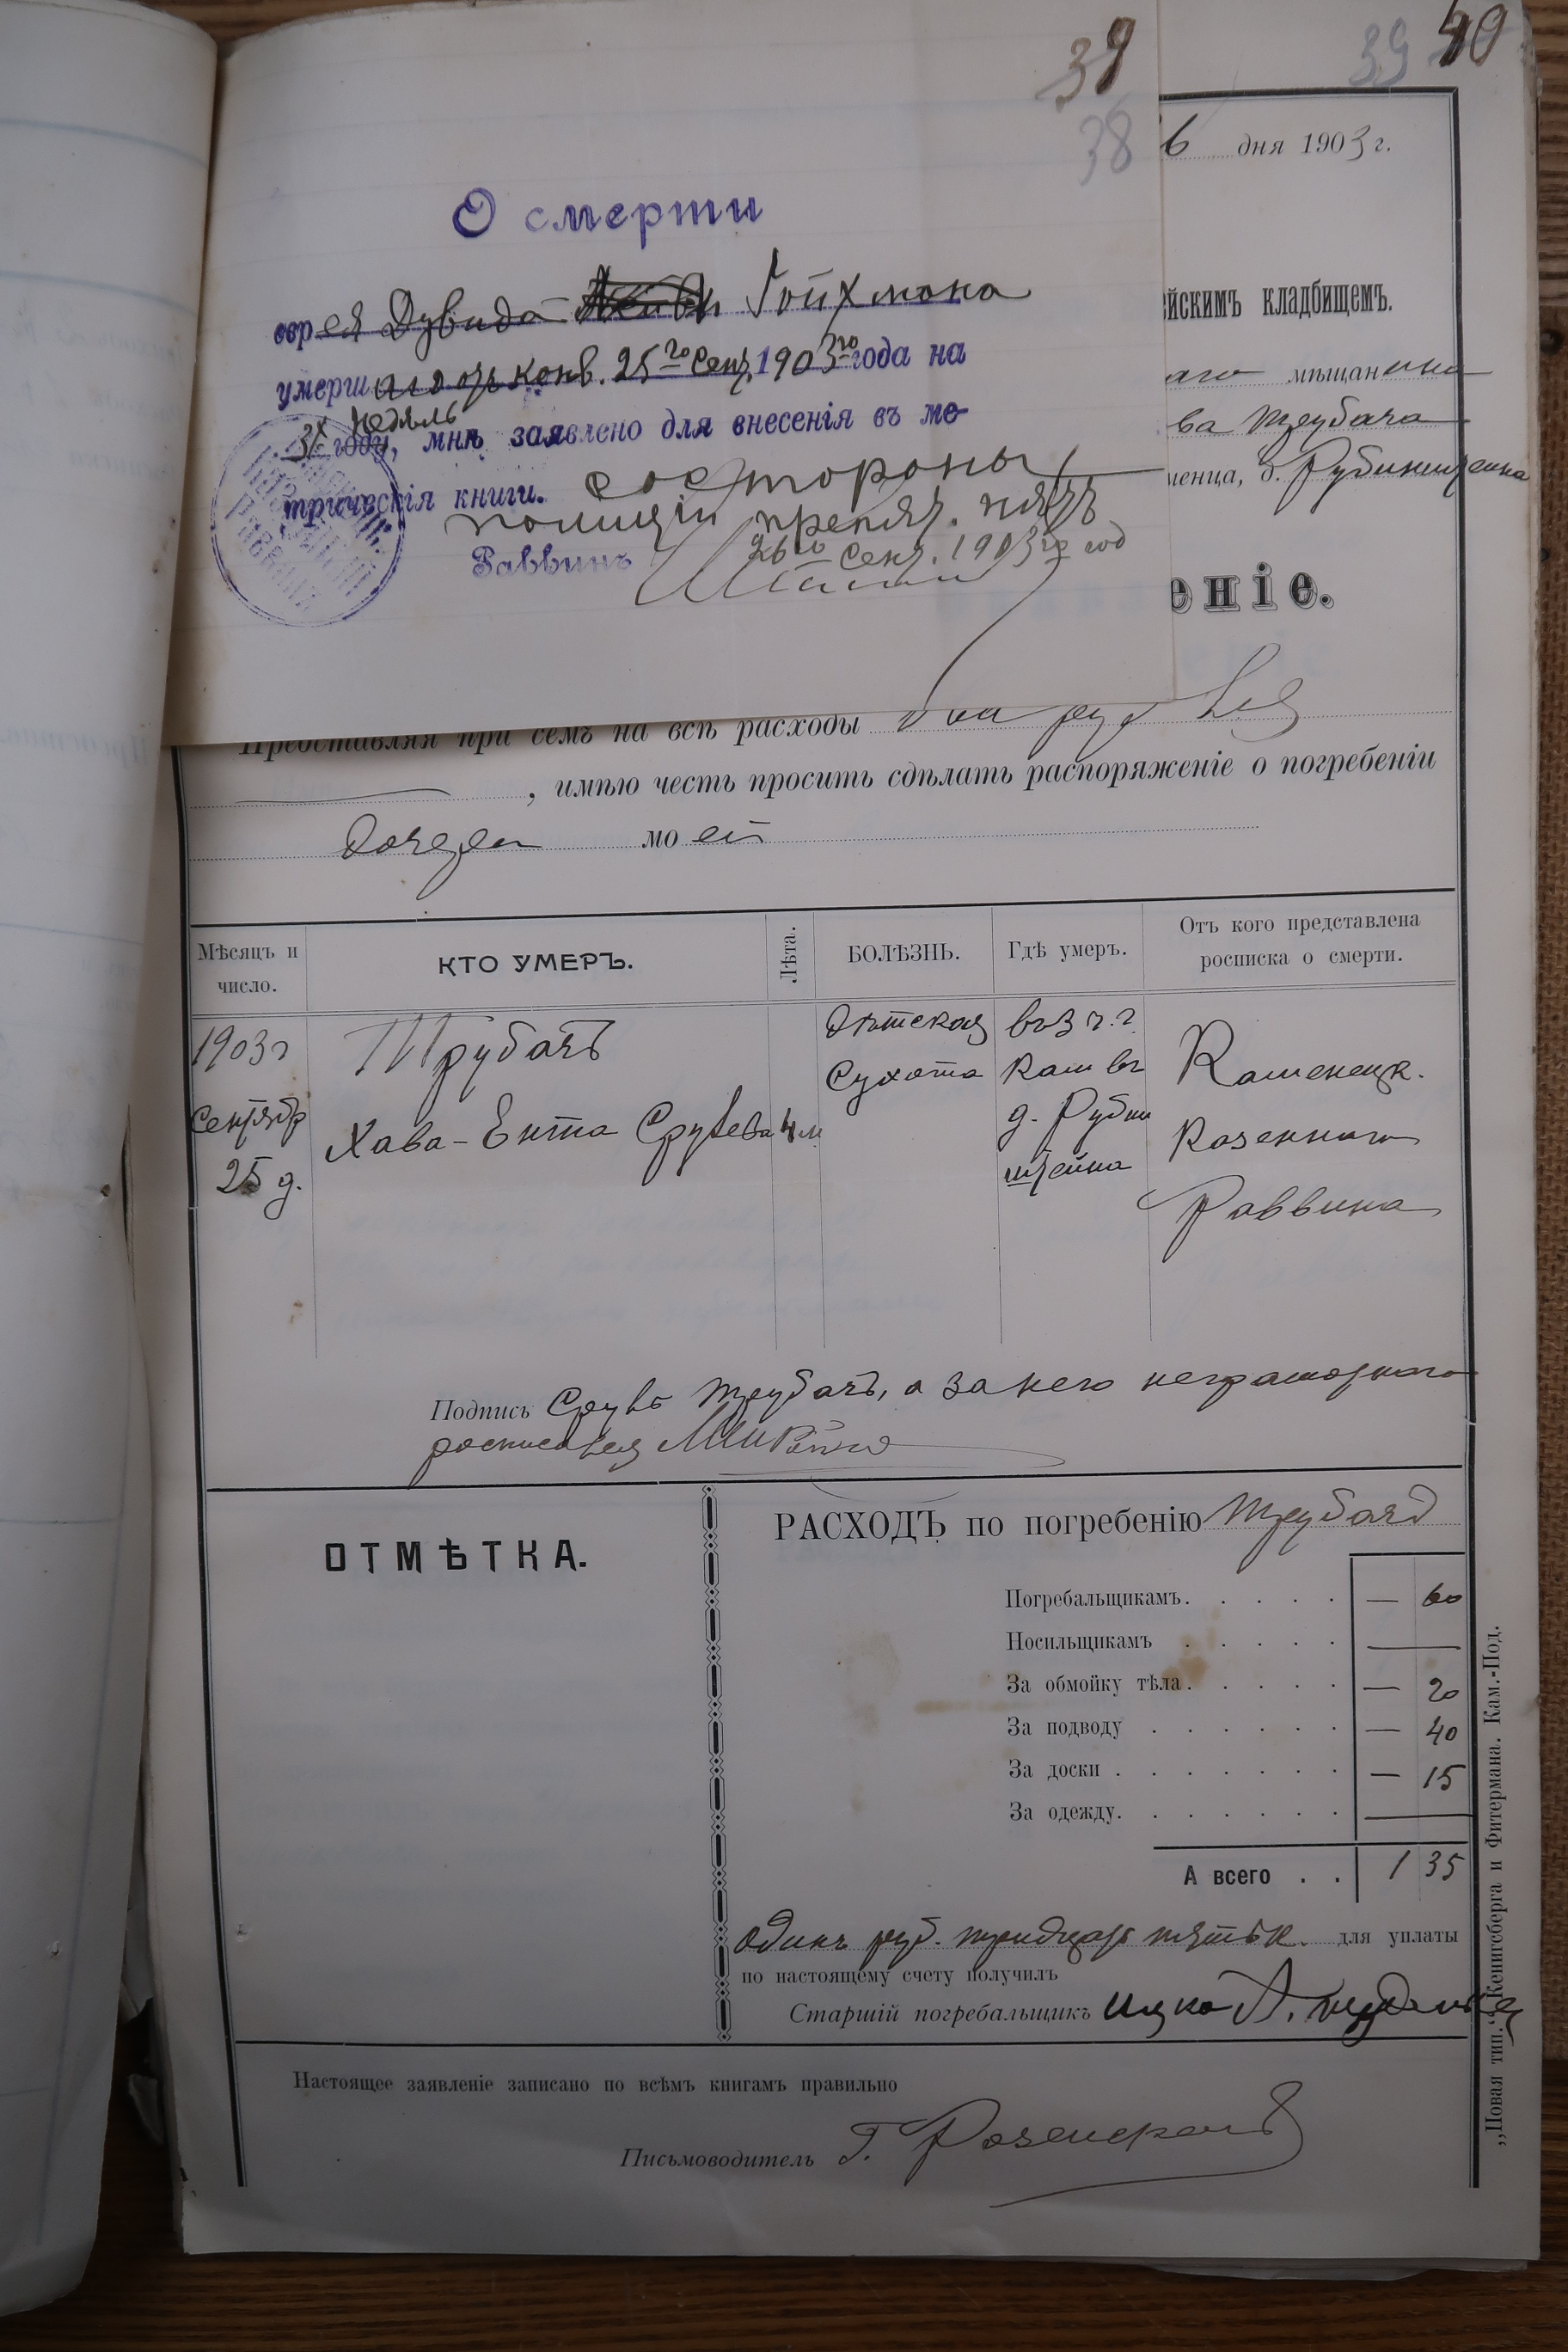 39
38
О смерти
еврея Дувида Гойхмана
умершаго отъ конв. 25го Сент. 1903го года на
3х недѣль году, мнѣ заявлено для внесенія въ ме-
трическія книги. со стороны
полиціи препят. нѣтъ
Раввинъ 26го Сент. 1903го год
39 40
6 дня 1903 г.
ейскимъ кладбищемъ.
аго мѣщанина
ва Трубача
менца, д. Рубинштейна
еніе.
Представляя при семъ на всѣ расходы
, имѣю честь просить сдѣлать распоряженіе о погребеніи
дочери моей
Мѣсяцъ и число.
КТО УМЕРЪ.
Лѣта.
БОЛѢЗНЬ.
Гдѣ умеръ.
Отъ кого представлена росписка о смерти.
1903 г
Сентябр
25 д.
Трубачъ
Хава-Ента Срулева
4 м
Дѣтская
Сухота
въ 3 ч. г.
Кам въ
д. Рубин
штейна
Каменецк.
Казеннаго
Раввина
Подпись Срулъ Трубачъ, а за него неграмотнаго
росписался
ОТМѢТКА.
РАСХОДЪ по погребенію Трубачъ
Погребальщикамъ. . . . . — 60
Носильщикамъ . . . . . —
За обмойку тѣла. . . . . — 20
За подводу . . . . . . — 40
За доски . . . . . . . — 15
За одежду. . . . . . . —
А всего . . 1 35
одинъ руб. тридцать пять к. для уплаты
по настоящему счету получилъ
Старшій погребальщикъ Ицко А.
Настоящее заявленіе записано по всѣмъ книгамъ правильно
Письмоводитель Г.
„Новая тип." Кенигсберга и Фитермана. Кам.-Под.